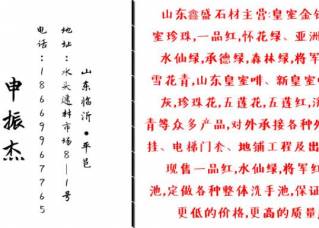 山东临沂•平邑
地址：水头建材市场8—1号
电话：18669967765
申振杰
山东鑫盛石材主营:皇室金
室珍珠,一品红,怀花绿、亚洲
水仙绿,承德绿,森林绿,将军
雪花青,山东皇室啡、新皇室
灰,珍珠花,五莲花,五莲红,
青等众多产品,对外承接各种外
挂、电梯门套、地铺工程及出
现售一品红,水仙绿,将军红
池,定做各种整体洗手池,保证
更低的价格,更高的质量